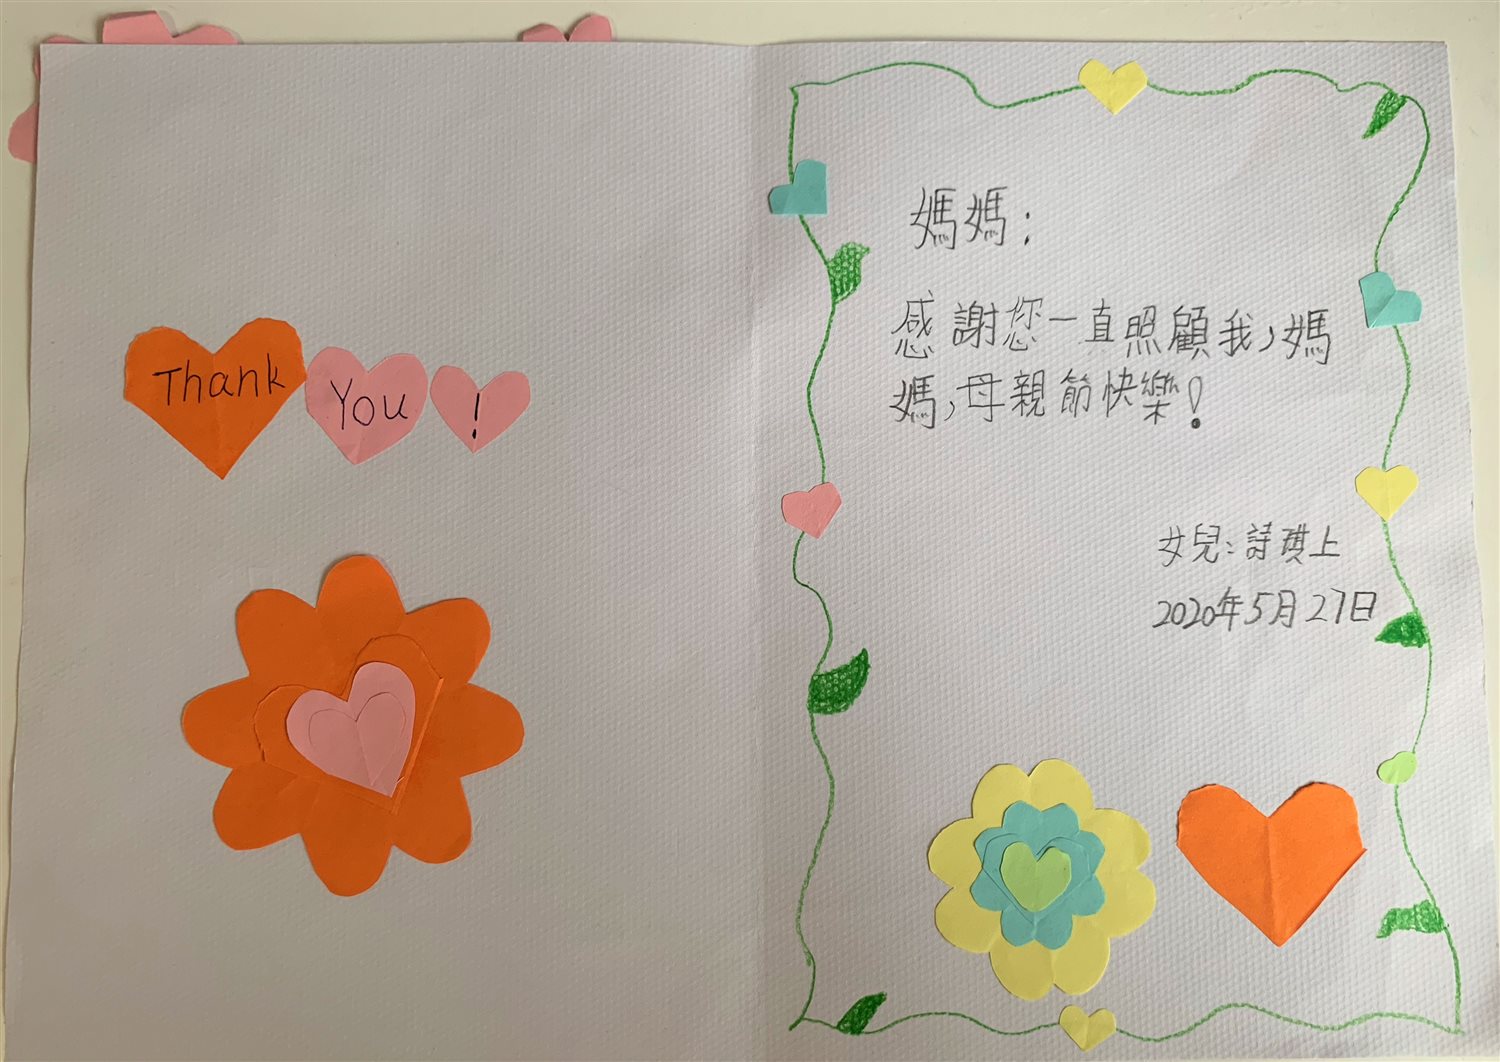 Thank You !
媽媽：
感謝您一直照顧我，媽
媽，母親節快樂！
女兒：詩琪上
2020年5月27日